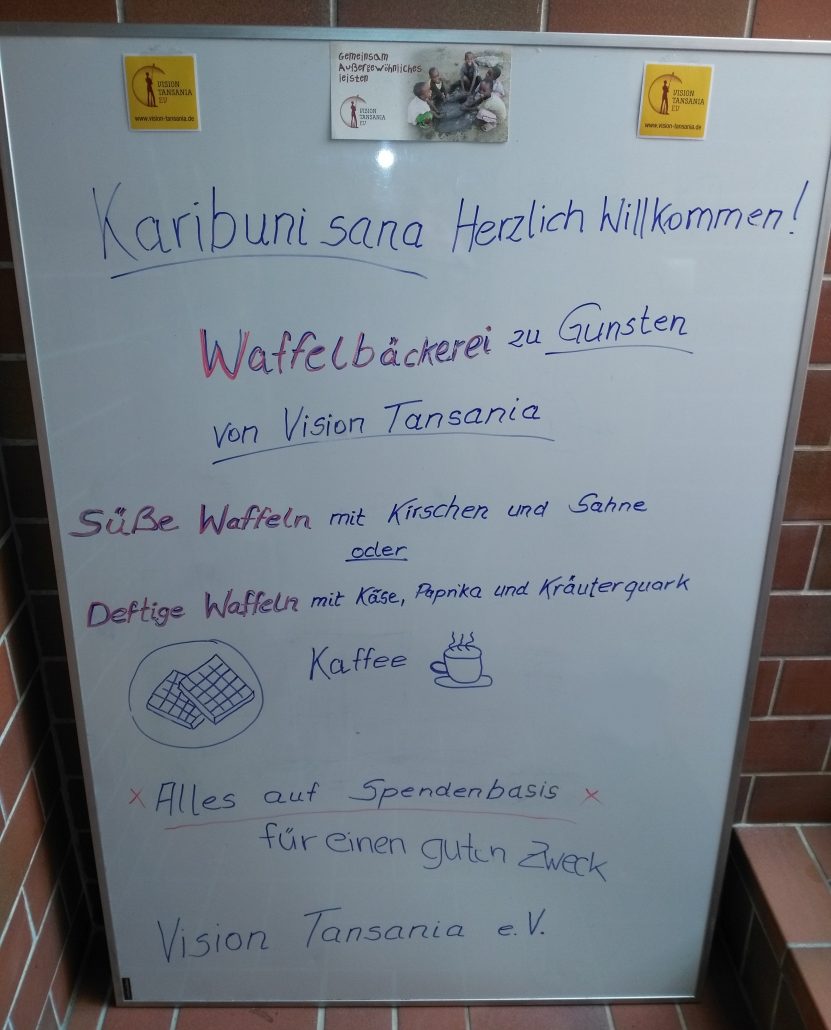 VISION
TANSANIA
EV
www.vision-tansania.de
Gemeinsam
Außergewöhnliches
leisten
VISION
TANSANIA
EV
VISION
TANSANIA
EV
www.vision-tansania.de
Karibuni sana Herzlich Willkommen!
Waffelbäckerei zu Gunsten
von Vision Tansania
Süße Waffeln mit Kirschen und Sahne
oder
Deftige Waffeln mit Käse, Paprika und Kräuterquark
Kaffee
x Alles auf Spendenbasis x
für einen guten Zweck
Vision Tansania e.V.